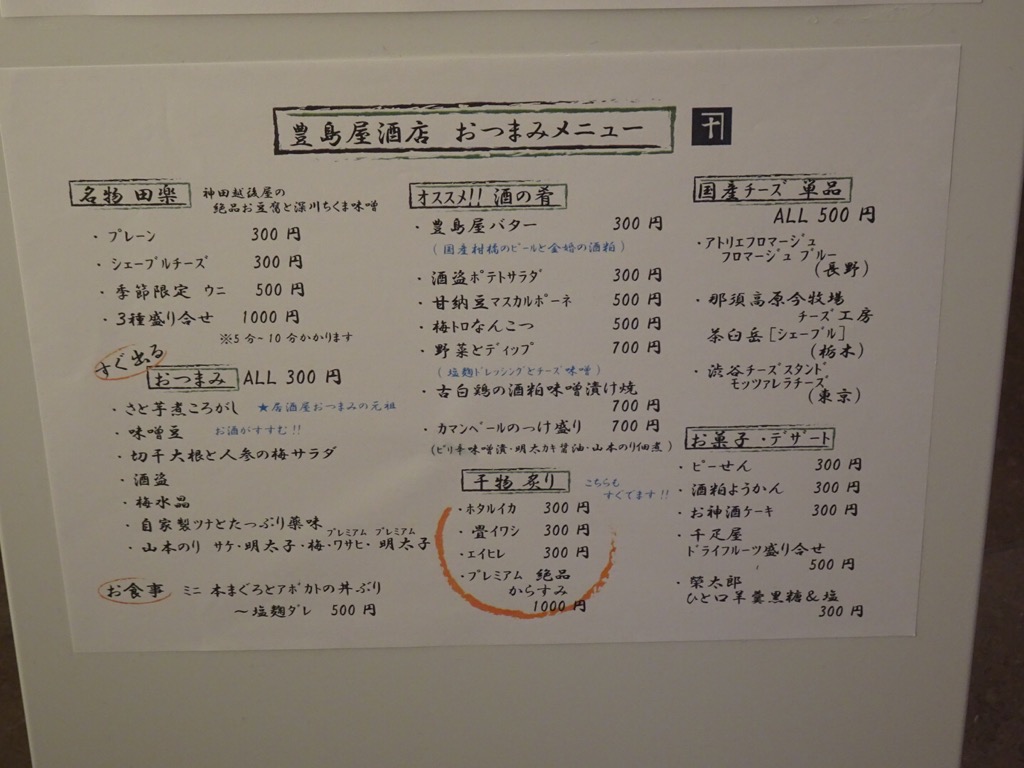 豊島屋酒店 おつまみメニュー
名物 田楽 神田越後屋の
絶品お豆腐と深川ちくま味噌
・プレーン 300 円
・シェーブルチーズ 300 円
・季節限定 ウニ 500 円
・3種盛り合せ 1000 円
※5分~10分かかります
すぐ出る
おつまみ ALL 300 円
・さと芋煮ころがし ★居酒屋おつまみの元祖
・味噌豆 お酒がすすむ!!
・切干大根と人参の梅サラダ
・酒盗
・梅水晶
・自家製ツナとたっぷり薬味
プレミアム プレミアム
・山本のり サケ・明太子・梅・ワサビ・明太子
お食事 ミニ 本まぐろとアボカトの丼ぶり
~塩麹ダレ 500 円
オススメ!! 酒の肴
・豊島屋バター 300 円
(国産柑橘のピールと金婚の酒粕)
・酒盗ポテトサラダ 300 円
・甘納豆マスカルポーネ 500 円
・梅トロなんこつ 500 円
・野菜とディップ 700 円
(塩麹ドレッシングとチーズ味噌)
・古白鶏の酒粕味噌漬け焼
700 円
・カマンベールのっけ盛り 700 円
(ピリ辛味噌漬・明太カキ醤油・山本のり佃煮)
干物 炙り こちらも
すぐでます!!
・ホタルイカ 300 円
・畳イワシ 300 円
・エイヒレ 300 円
・プレミアム 絶品
からすみ
1000 円
国産チーズ 単品
ALL 500 円
・アトリエフロマージュ
フロマージュ ブルー
(長野)
・那須高原今牧場
チーズ工房
茶臼岳[シェーブル]
(栃木)
・渋谷チーズスタンド
モッツァレラチーズ
(東京)
お菓子・デザート
・ピーせん 300 円
・酒粕ようかん 300 円
・お神酒ケーキ 300 円
・千疋屋
ドライフルーツ盛り合せ
500 円
・榮太郎
ひと口羊羹黒糖&塩
300 円